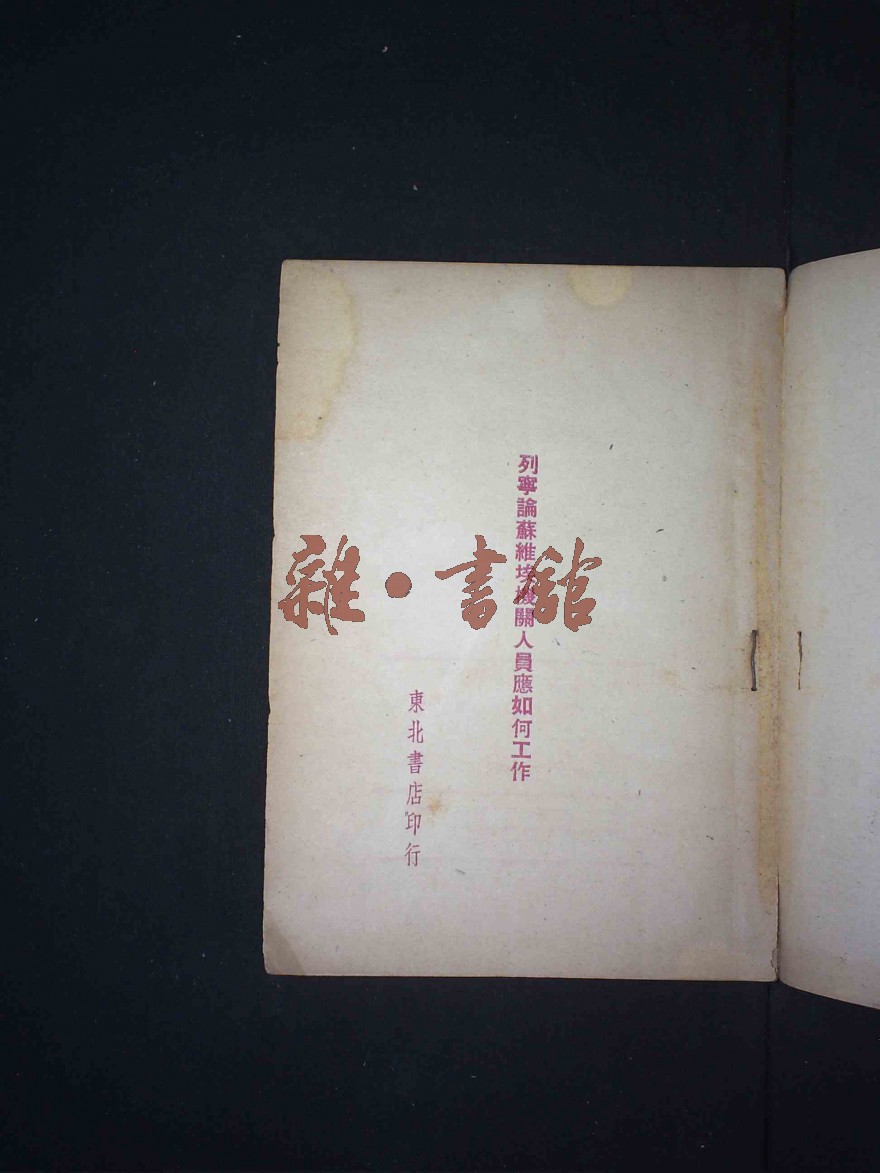 列寧論蘇維埃機關人員應如何工作
東北書店印行
雜·書館